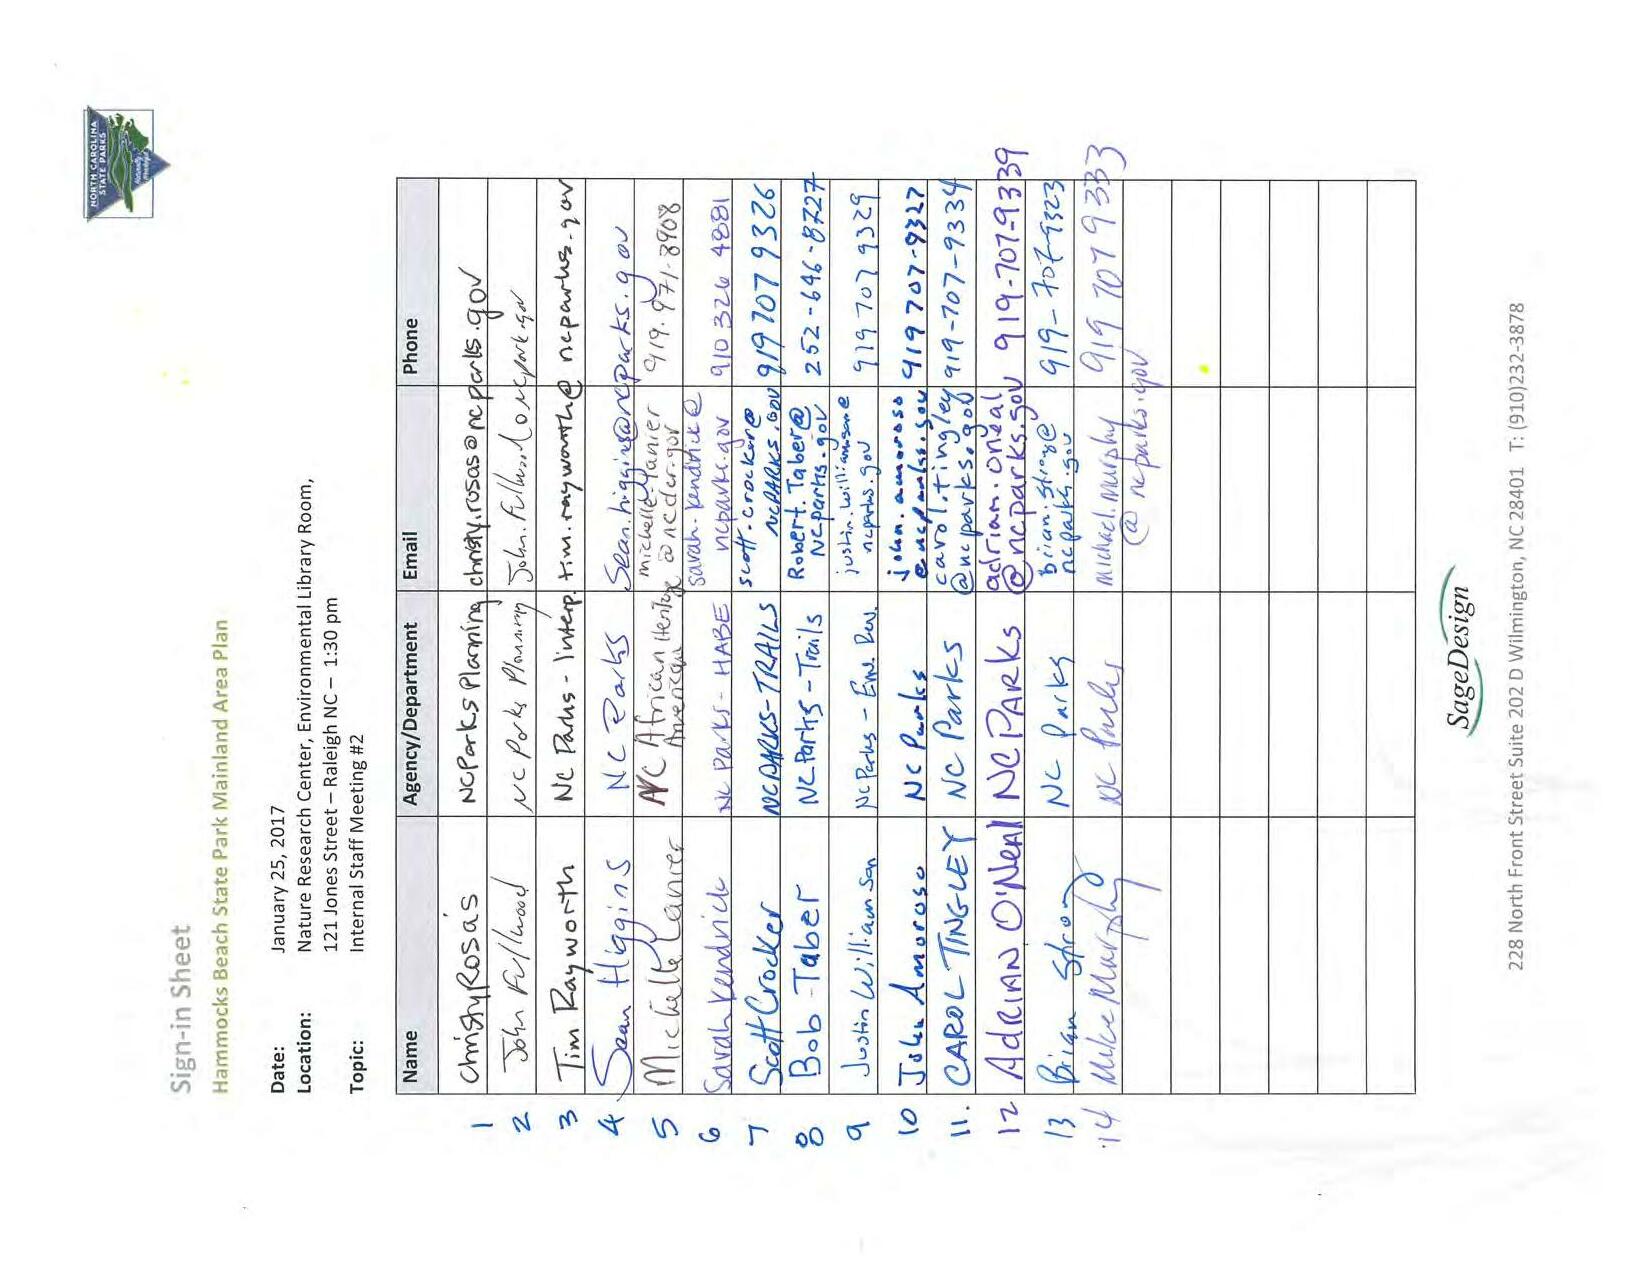 NORTH CAROLINA
STATE PARKS
Naturally Wonderful
Sign-in Sheet
Hammocks Beach State Park Mainland Area Plan
Date: January 25, 2017
Location: Nature Research Center, Environmental Library Room,
121 Jones Street – Raleigh NC – 1:30 pm
Topic: Internal Staff Meeting #2
Name Agency/Department Email Phone
1 Christy Rosas NC Parks Planning christy.rosas@ncparks.gov
2 John Fullwood NC Parks Planning John.Fullwood@ncpark.gov
3 Tim Rayworth NC Parks - Interp. tim.rayworth@ncparks.gov
4 Sean Higgins NC Parks Sean.higgins@ncparks.gov
5 Michelle Lanier NC African American Heritage michelle.lanier@ncdcr.gov 919.971-8908
6 Sarah Kendrick NC PARKS - HABE sarah.kendrick@ncparks.gov 910 326 4881
7 Scott Crocker NC PARKS-TRAILS scott.crocker@NCPARKS.GOV 919 707 9326
8 Bob Taber NC Parks - Trails Robert.Taber@NCparks.gov 252-646-8727
9 Justin Williamson NC Parks - Env. Rev. justin.williamson@ncparks.gov 919 707 9329
10 John Amoroso NC Parks john.amoroso@ncparks.gov 919 707-9327
11. CAROL TINGLEY NC Parks carol.tingley@ncparks.gov 919-707-9334
12 ADRIAN O'NEAL NC PARKS adrian.oneal@ncparks.gov 919-707-9339
13 Brian Strong NC Parks brian.strong@ncparks.gov 919-707-9323
14 Mike Murphy NC Parks michael.murphy@ncparks.gov 919 707 9333
SageDesign
228 North Front Street Suite 202 D Wilmington, NC 28401 T: (910)232-3878